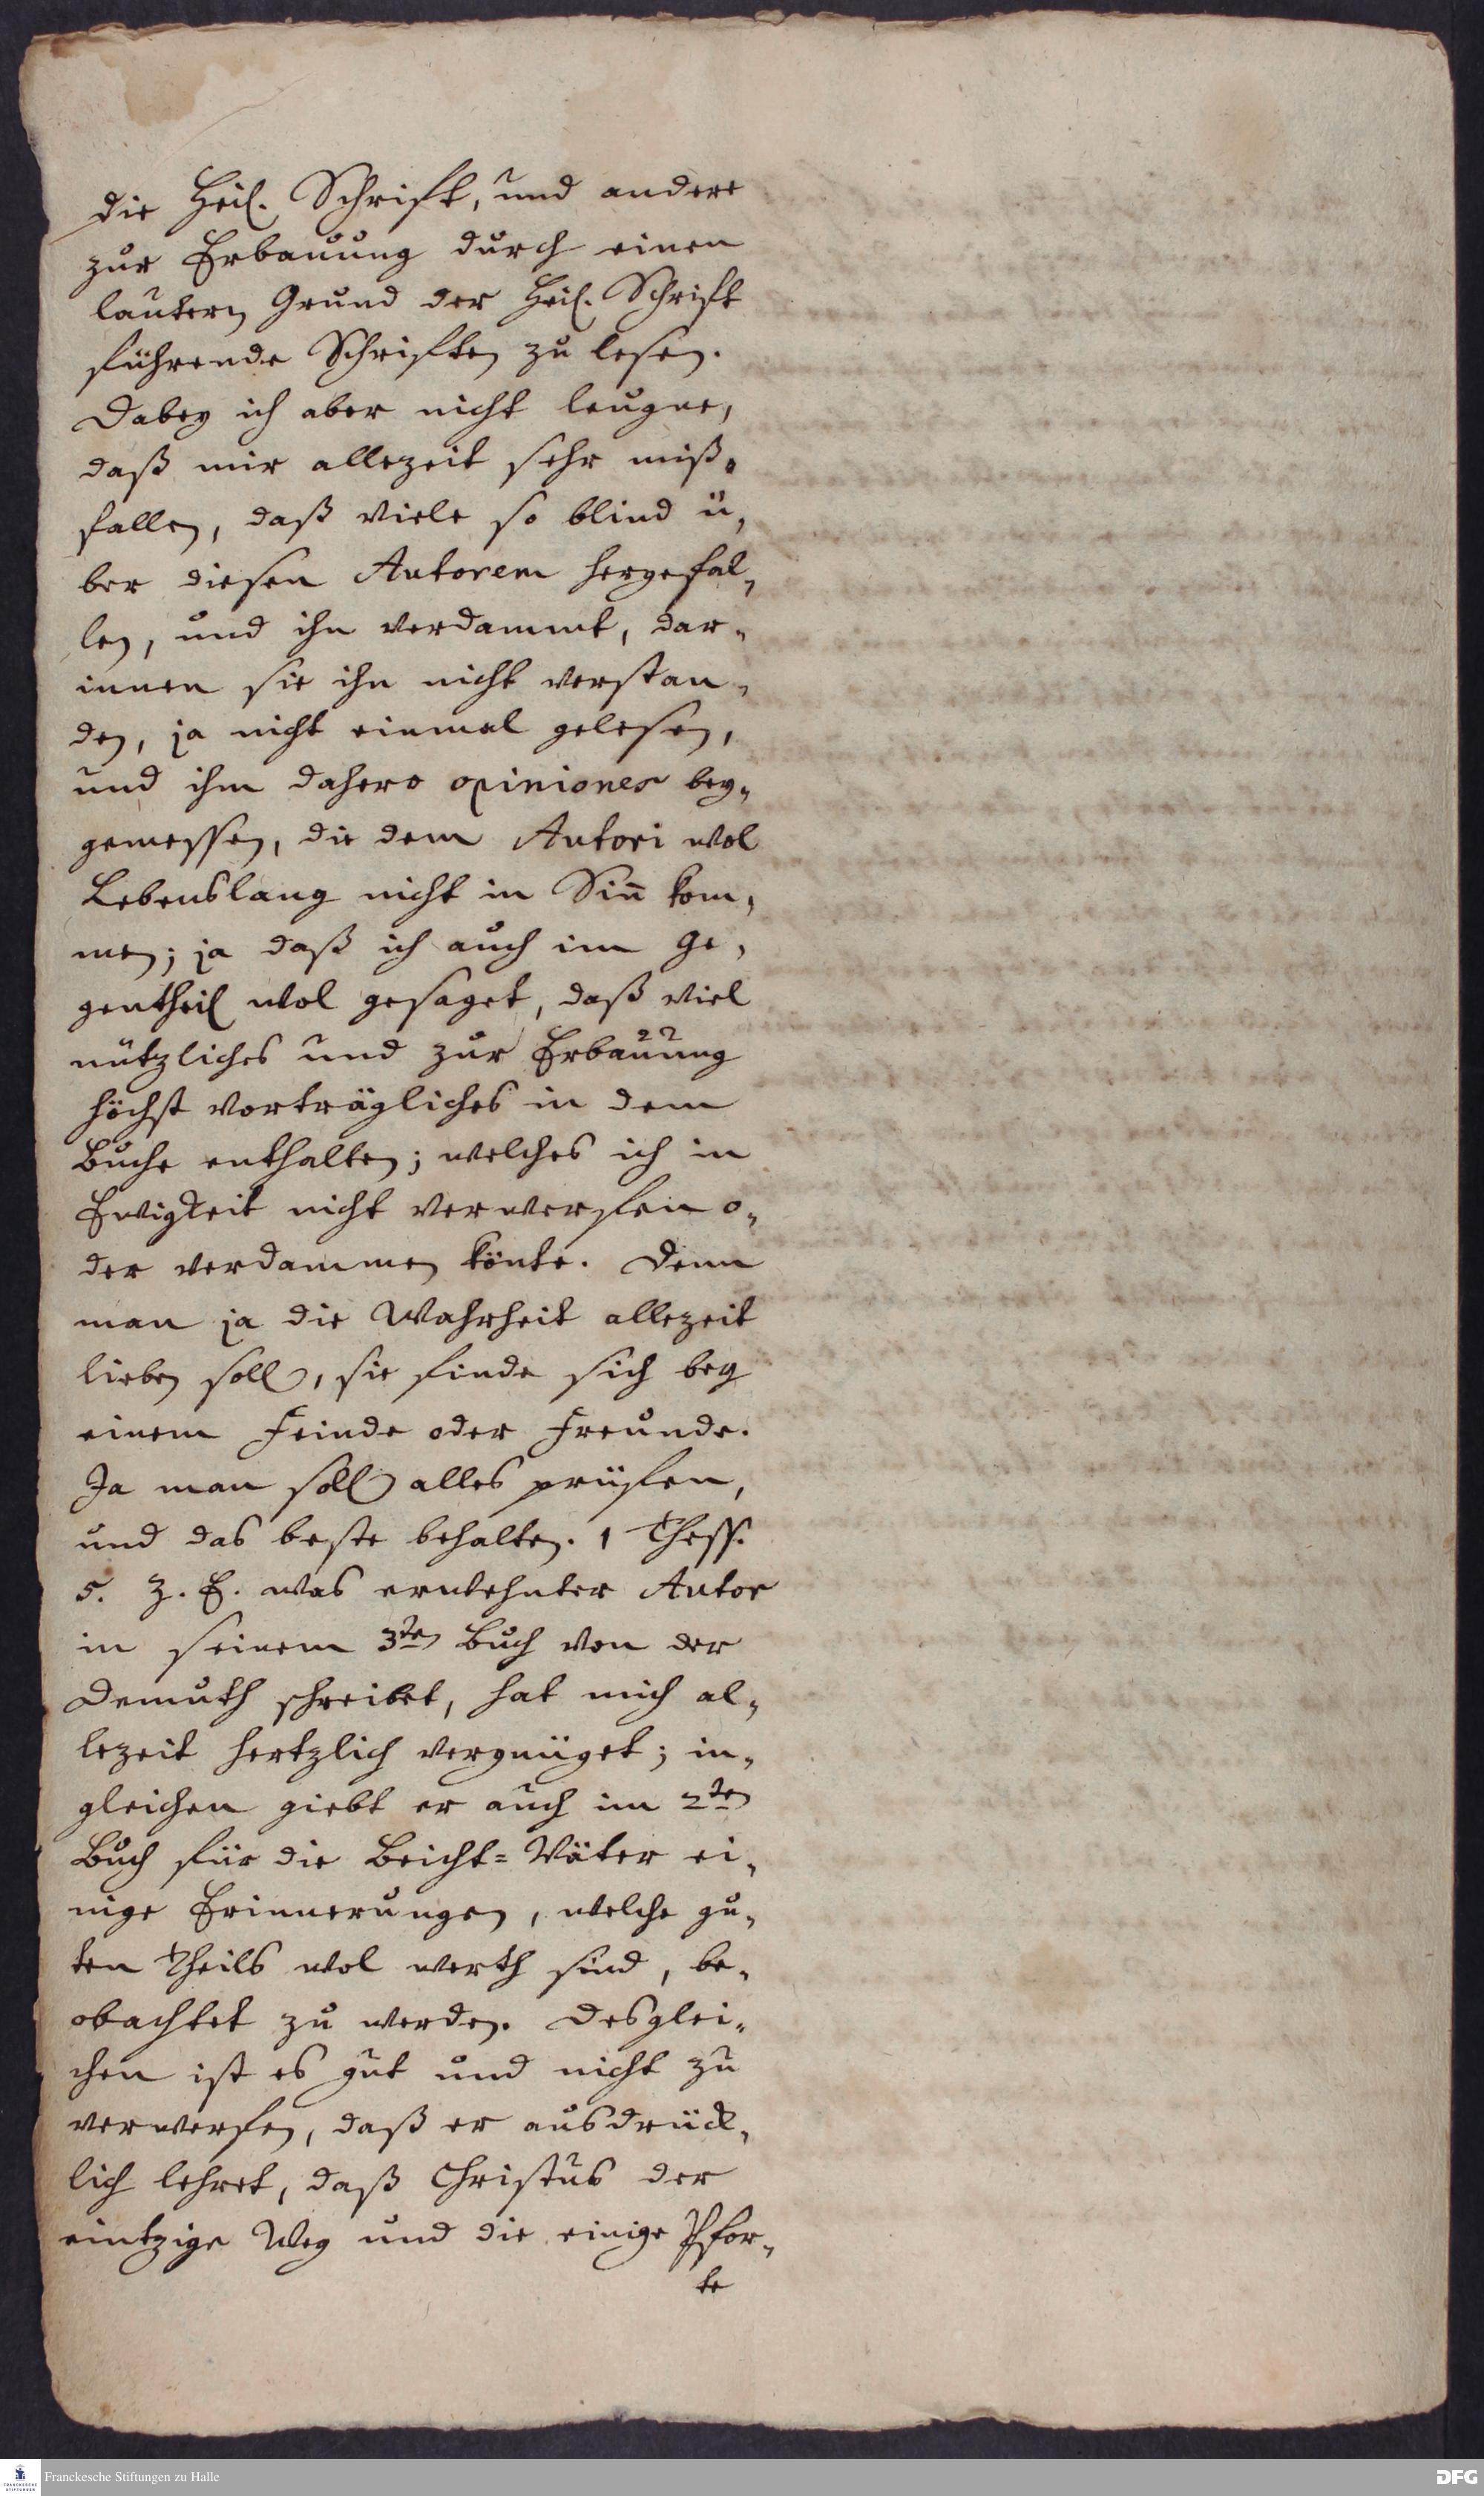 die Heil. Schrift, und andere
zur Erbauung durch einen
lautern Grund der Heil. Schrift
führende Schriften zu lesen.
Dabey ich aber nicht leugne,
daß mir allezeit sehr miß-
fallen, daß viele so blind ü-
ber diesen Autorem hergefal-
len, und ihn verdammt, dar-
innen sie ihn nicht verstan-
den, ja nicht einmal gelesen,
und ihm dahero opiniones bey-
gemessen, die dem Autori wol
Lebenslang nicht in Siñ kom-
men; ja daß ich auch im Ge-
gentheil wol gesaget, daß viel
nützliches und zur Erbauung
höchst vorträgliches in dem
Buche enthalten; welches ich in
Ewigkeit nicht verwerfen o-
der verdammen könte. Denn
man ja die Wahrheit allezeit
lieben soll, sie finde sich bey
einem Feinde oder Freunde.
Ja man soll alles prüfen,
und das beste behalten. 1 Thess.
5. Z. E. was erwehnter Autor
in seinem 3ten Buch von der
Demuth schreibet, hat mich al-
lezeit hertzlich vergnüget; in-
gleichen giebt er auch im 2ten
Buch für die Beicht-Väter ei-
nige Erinnerungen, welche gu-
ten Theils wol werth sind, be-
obachtet zu werden. Desglei-
chen ist es gut und nicht zu
verwerfen, daß er ausdrück-
lich lehret, daß Christus der
eintzige Weg und die einige Pfor-
te
Franckesche Stiftungen zu Halle
DFG